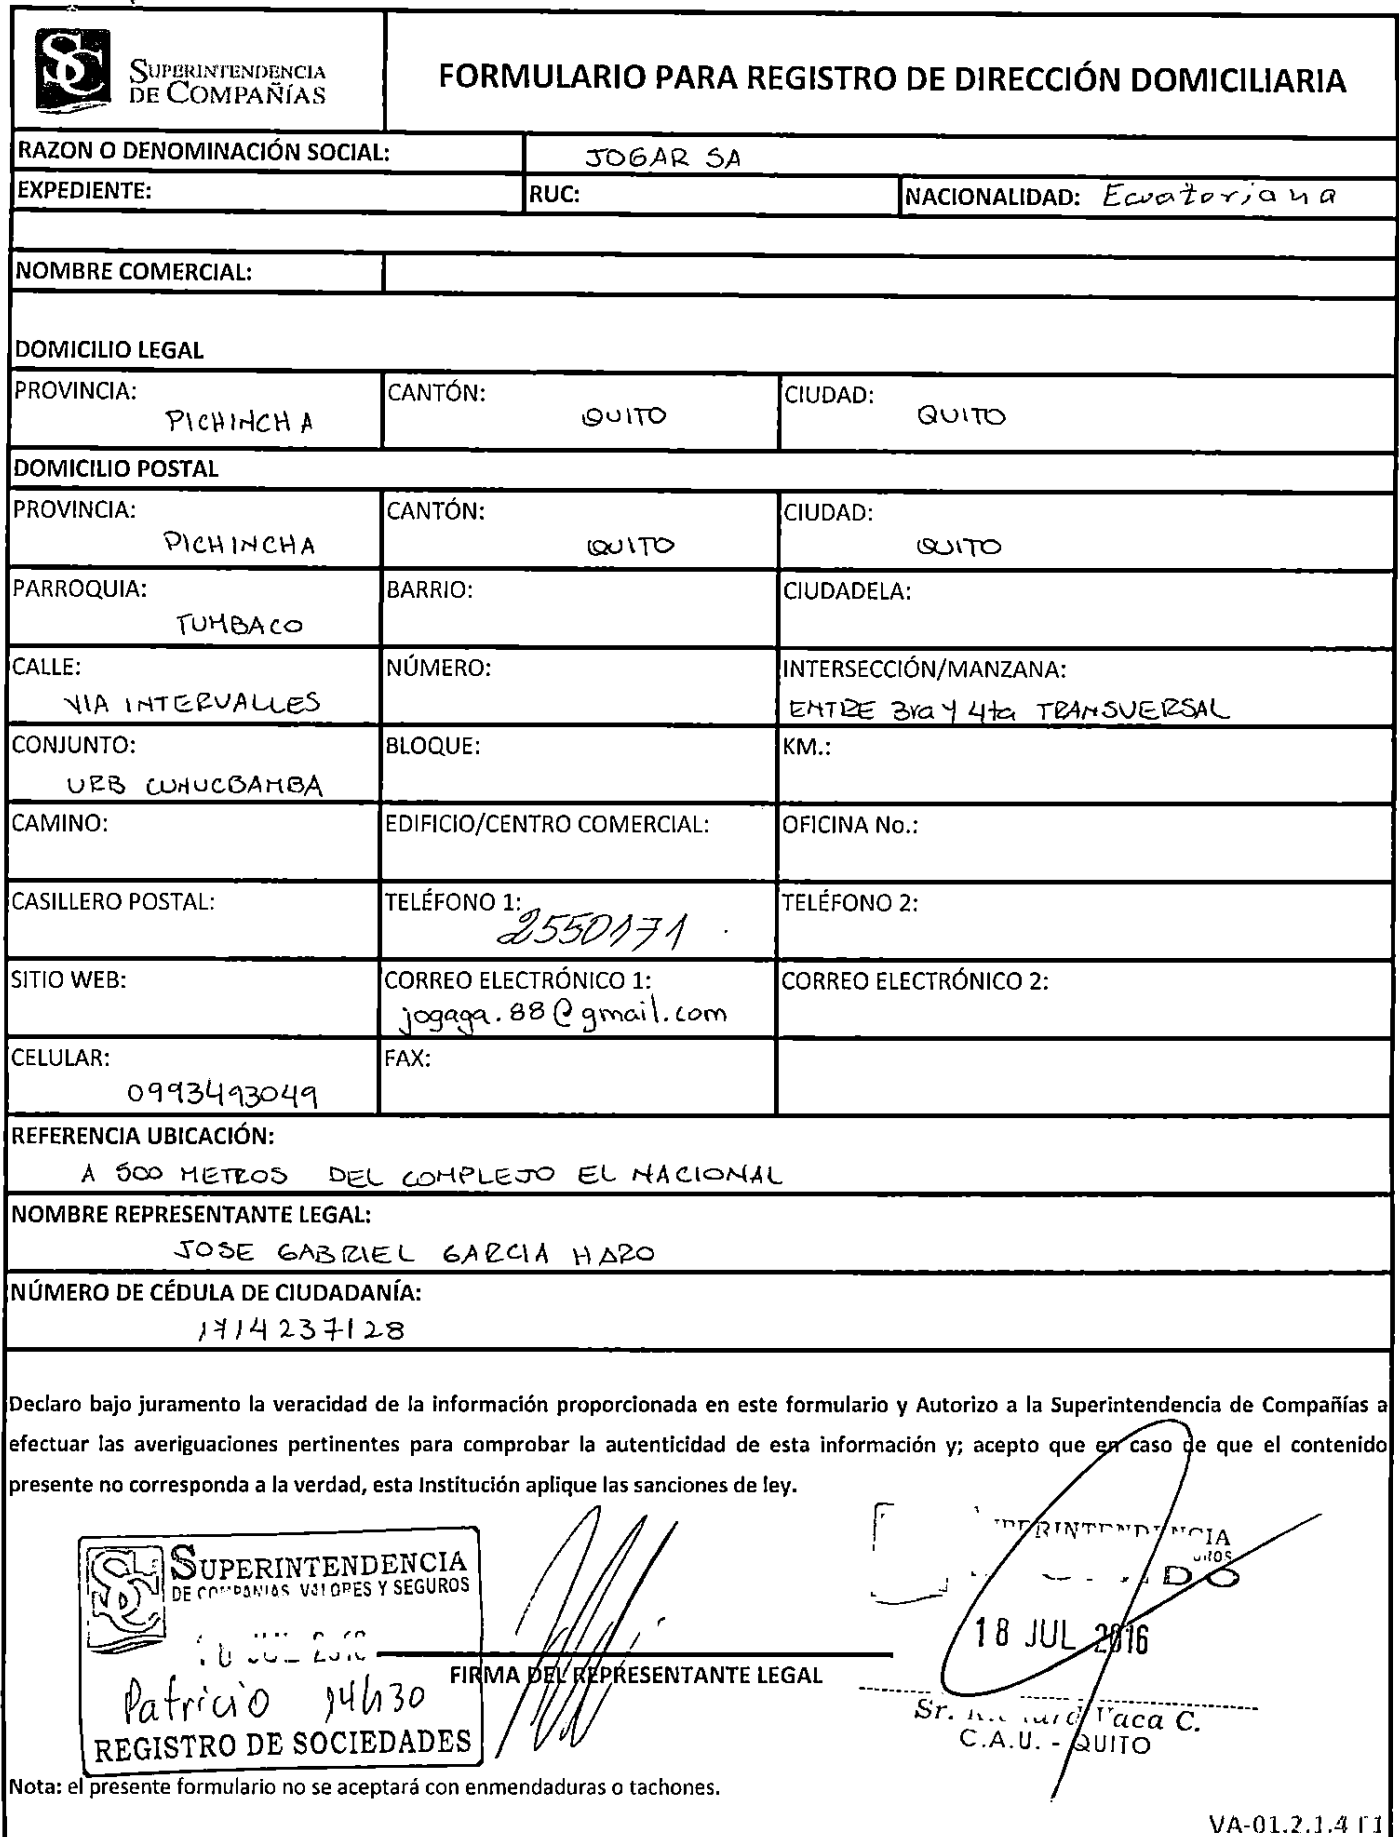 SUPERINTENDENCIA
DE COMPAÑÍAS
FORMULARIO PARA REGISTRO DE DIRECCIÓN DOMICILIARIA
RAZON O DENOMINACIÓN SOCIAL: JOGAR SA
EXPEDIENTE: RUC: NACIONALIDAD: Ecuatoriana
NOMBRE COMERCIAL:
DOMICILIO LEGAL
PROVINCIA: CANTÓN: CIUDAD:
PICHINCHA QUITO QUITO
DOMICILIO POSTAL
PROVINCIA: CANTÓN: CIUDAD:
PICHINCHA QUITO QUITO
PARROQUIA: BARRIO: CIUDADELA:
TUMBACO
CALLE: NÚMERO: INTERSECCIÓN/MANZANA:
VIA INTERVALLES ENTRE 3ra Y 4ta TRANSVERSAL
CONJUNTO: BLOQUE: KM.:
URB CUNUCBAMBA
CAMINO: EDIFICIO/CENTRO COMERCIAL: OFICINA No.:
CASILLERO POSTAL: TELÉFONO 1: TELÉFONO 2:
2550171
SITIO WEB: CORREO ELECTRÓNICO 1: CORREO ELECTRÓNICO 2:
jogaga.88@gmail.com
CELULAR: FAX:
0993493049
REFERENCIA UBICACIÓN:
A 500 METROS DEL COMPLEJO EL NACIONAL
NOMBRE REPRESENTANTE LEGAL:
JOSE GABRIEL GARCIA HARO
NÚMERO DE CÉDULA DE CIUDADANÍA:
1714237128
Declaro bajo juramento la veracidad de la información proporcionada en este formulario y Autorizo a la Superintendencia de Compañías a
efectuar las averiguaciones pertinentes para comprobar la autenticidad de esta información y; acepto que en caso de que el contenido
presente no corresponda a la verdad, esta Institución aplique las sanciones de ley.
SUPERINTENDENCIA
DE COMPAÑIAS VALORES Y SEGUROS
Patricio 14h30
REGISTRO DE SOCIEDADES
FIRMA DEL REPRESENTANTE LEGAL
SUPERINTENDENCIA
18 JUL 2016
Sr. Vaca C.
C.A.U. - QUITO
Nota: el presente formulario no se aceptará con enmendaduras o tachones.
VA-01.2.1.4 F1